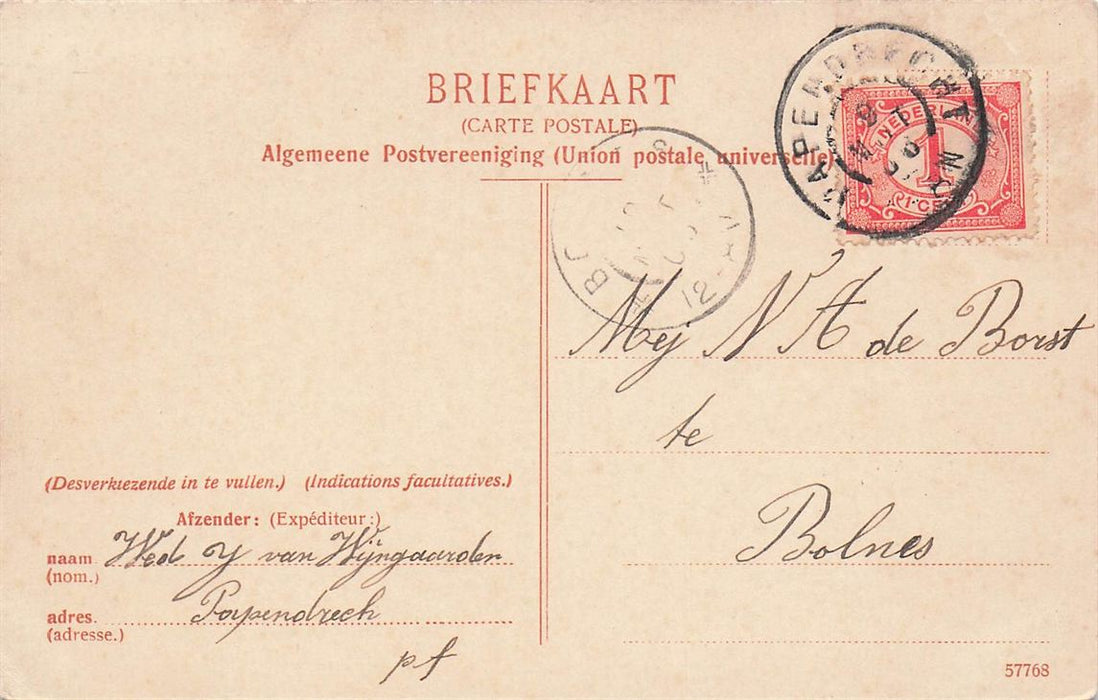 BRIEFKAART
(CARTE POSTALE)
Algemeene Postvereeniging (Union postale universelle)
PAPENDRECHT
NEDERL
1
1 CE
12
Mej N A de Borst
te
Bolnes
(Desverkiezende in te vullen.) (Indications facultatives.)
Afzender: (Expéditeur:)
naam Wed Y van Wijngaarden
(nom.)
adres. Papendrech
(adresse.)
pf
57768